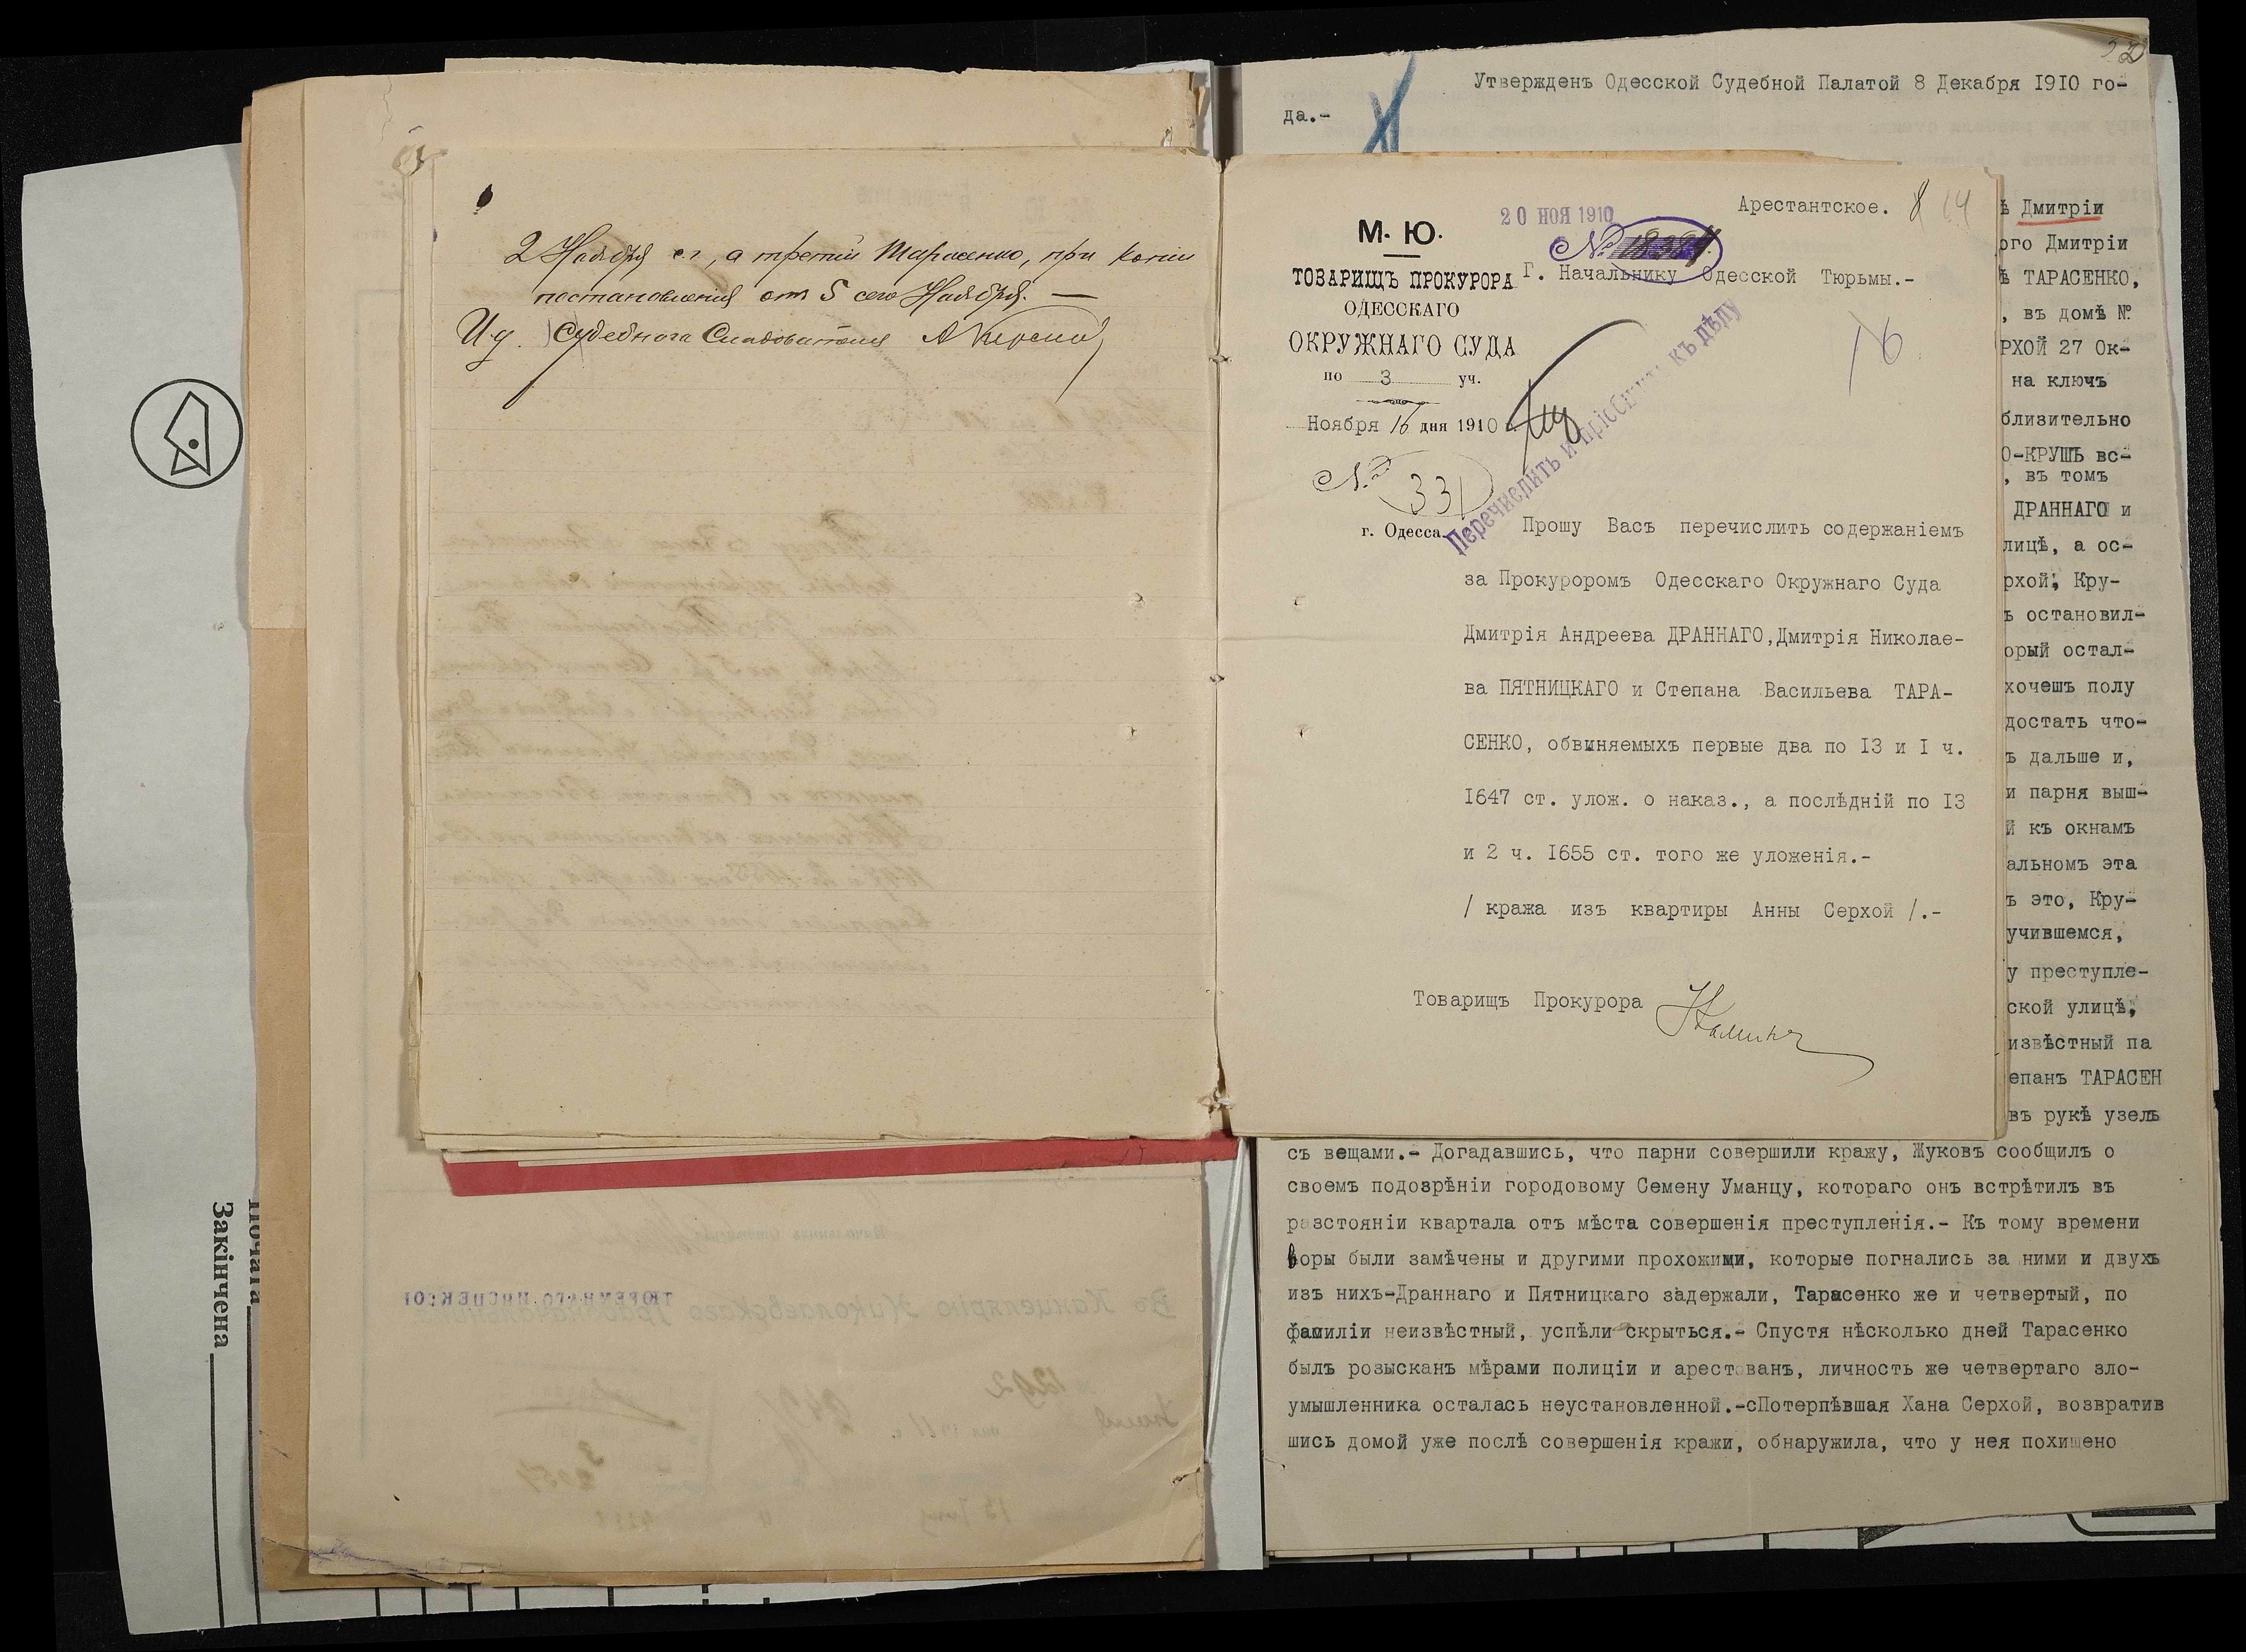 2 Ноября с.г, а третій Тарасенко, при копіи
постановленія отъ 5 сего Ноября. —
И.д. Судебнаго Слѣдователя
Закінчена
М. Ю.
ТОВАРИЩЪ ПРОКУРОРА
ОДЕССКАГО
ОКРУЖНАГО СУДА
по 3 уч.
Ноября 16 дня 1910
№ 331
г. Одесса.
20 НОЯ 1910
№
Арестантское. 8 14
Г. Начальнику Одесской Тюрьмы.-
16
Перечислить и пріобщить къ дѣлу
Прошу Васъ перечислить содержаніемъ
за Прокуроромъ Одесскаго Окружнаго Суда
Дмитрія Андреева ДРАННАГО,Дмитрія Николае-
ва ПЯТНИЦКАГО и Степана Васильева ТАРА-
СЕНКО, обвиняемыхъ первые два по I3 и I ч.
I647 ст. улож. о наказ., а послѣдній по I3
и 2 ч. I655 ст. того же уложенія.-
/ кража изъ квартиры Анны Серхой /.-
Товарищъ Прокурора
Утвержденъ Одесской Судебной Палатой 8 Декабря I9I0 го-
да.-
ѣ Дмитріи
ого Дмитріи
ѣ ТАРАСЕНКО,
, въ домѣ №
РХОЙ 27 Ок-
на ключъ
близительно
О-КРУШЪ вс-
, въ томъ
ДРАННАГО и
лицѣ, а ос-
рхой, Кру-
ъ остановил-
орый остал-
хочешъ полу
достать что-
ъ дальше и,
и парня выш-
й къ окнамъ
альномъ эта
ъ это, Кру-
учившемся,
у преступле-
ской улицѣ,
извѣстный па
епанъ ТАРАСЕН
въ рукѣ узелъ
съ вещами.- Догадавшись, что парни совершили кражу, Жуковъ сообщилъ о
своемъ подозрѣніи городовому Семену Уманцу, котораго онъ встрѣтилъ въ
разстояніи квартала отъ мѣста совершенія преступленія.- Къ тому времени
воры были замѣчены и другими прохожими, которые погнались за ними и двухъ
изъ нихъ-Драннаго и Пятницкаго задержали, Тарасенко же и четвертый, по
фамиліи неизвѣстный, успѣли скрыться.- Спустя нѣсколько дней Тарасенко
былъ розысканъ мѣрами полиціи и арестованъ, личность же четвертаго зло-
умышленника осталась неустановленной.-сПотерпѣвшая Хана Серхой, возвратив
шись домой уже послѣ совершенія кражи, обнаружила, что у нея похищено